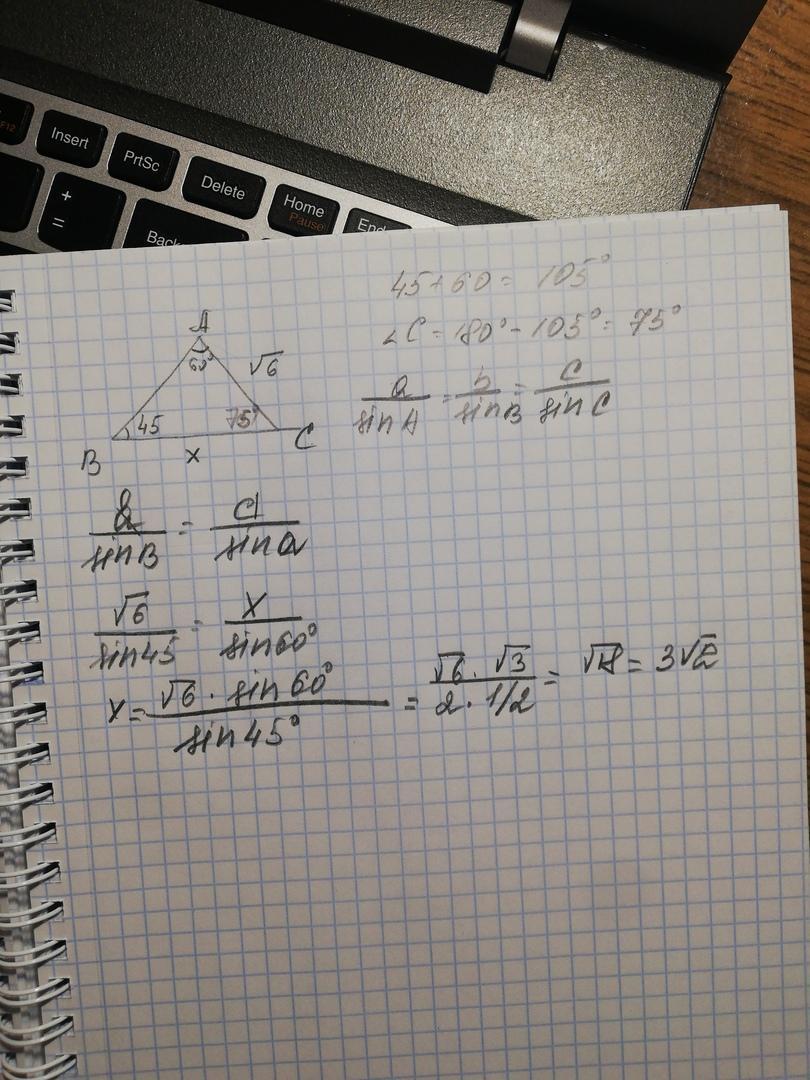 F12
Insert
PrtSc
Delete
Home
Pause
End
+
=
Back
45+60 = 105°
∠C = 180° - 105° = 75°
A
60°
√6
45
75°
B
x
C
a/sin A = b/sin B = c/sin C
/sin B = a/sin a
√6/sin 45 = x/sin 60°
x = √6 · sin 60°/sin 45° = √6 · √3/2 · 1/2 = √18 = 3√2